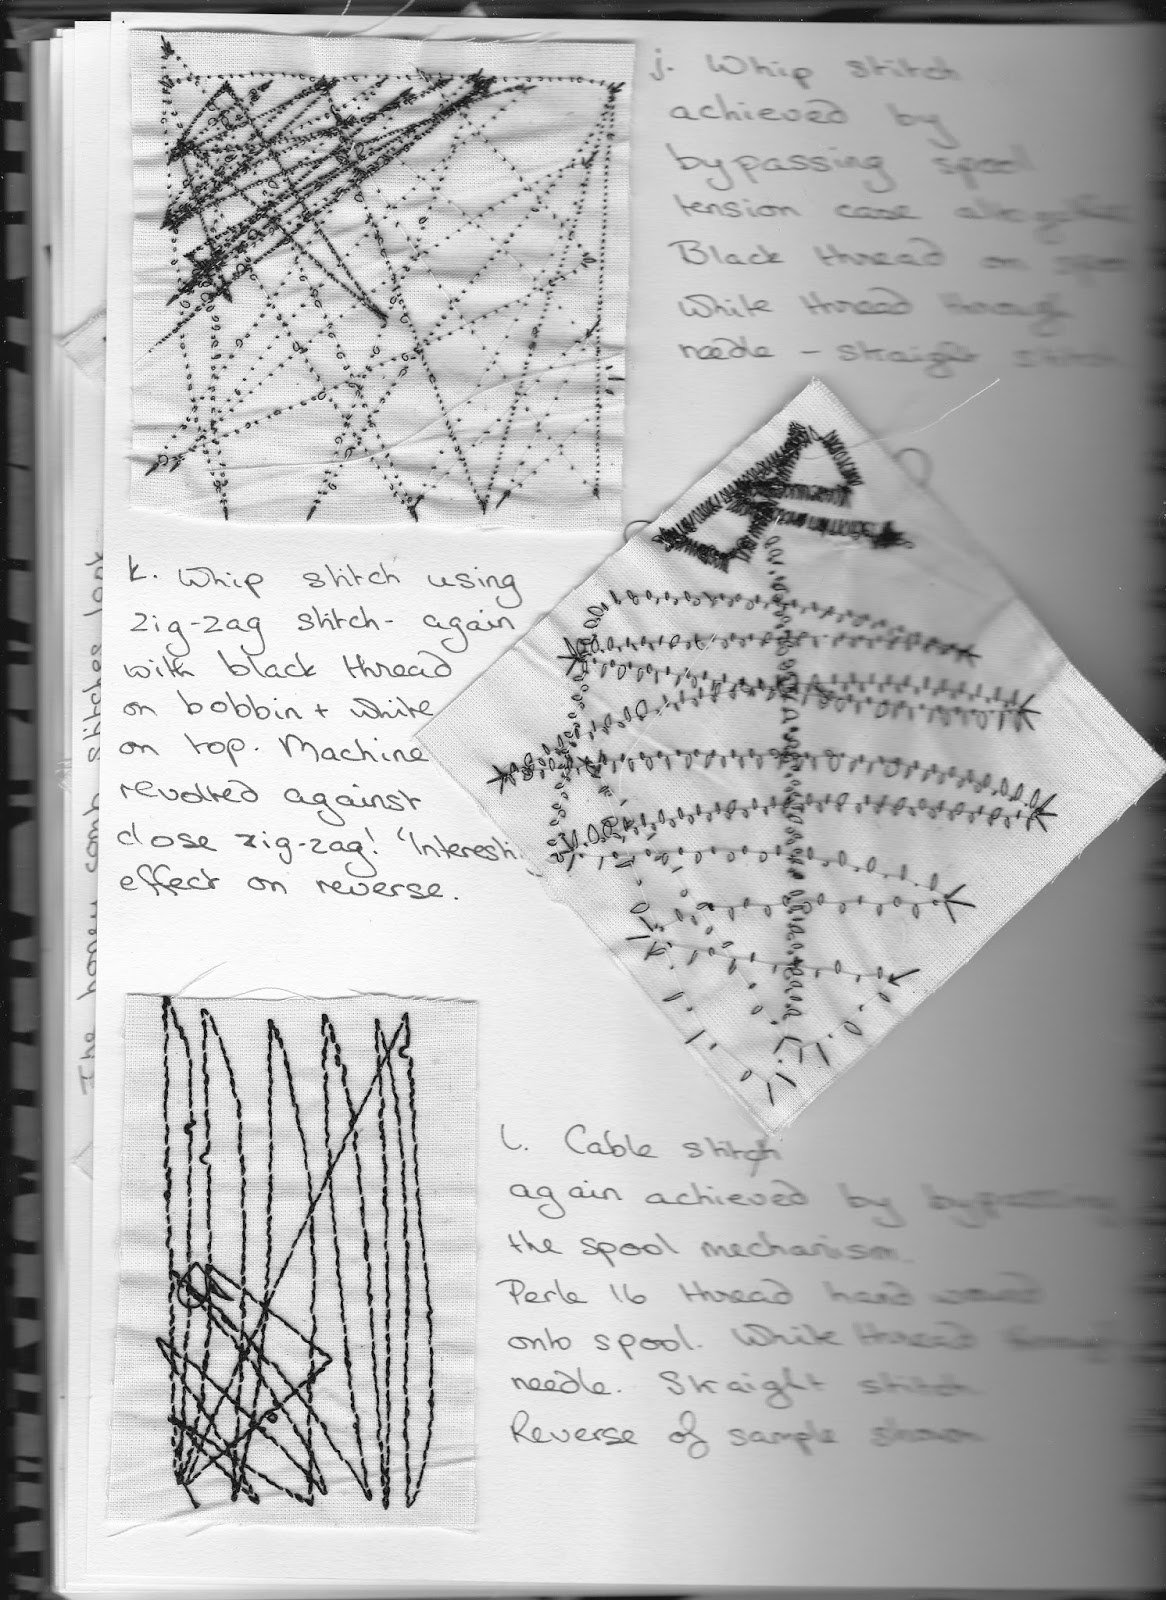 j. Whip stitch
achieved by
bypassing spool
tension case altogether
Black thread on spool
White thread through
needle - straight stitch
k. Whip stitch using
zig-zag stitch - again
with black thread
on bobbin + white
on top. Machine
revolted against
close zig-zag! 'Interesti
effect on reverse.
l. Cable stitch
again achieved by bypassing
the spool mechanism.
Perle 16 thread hand wound
onto spool. White thread through
needle. Straight stitch
Reverse of sample shown
The honey comb stitches look